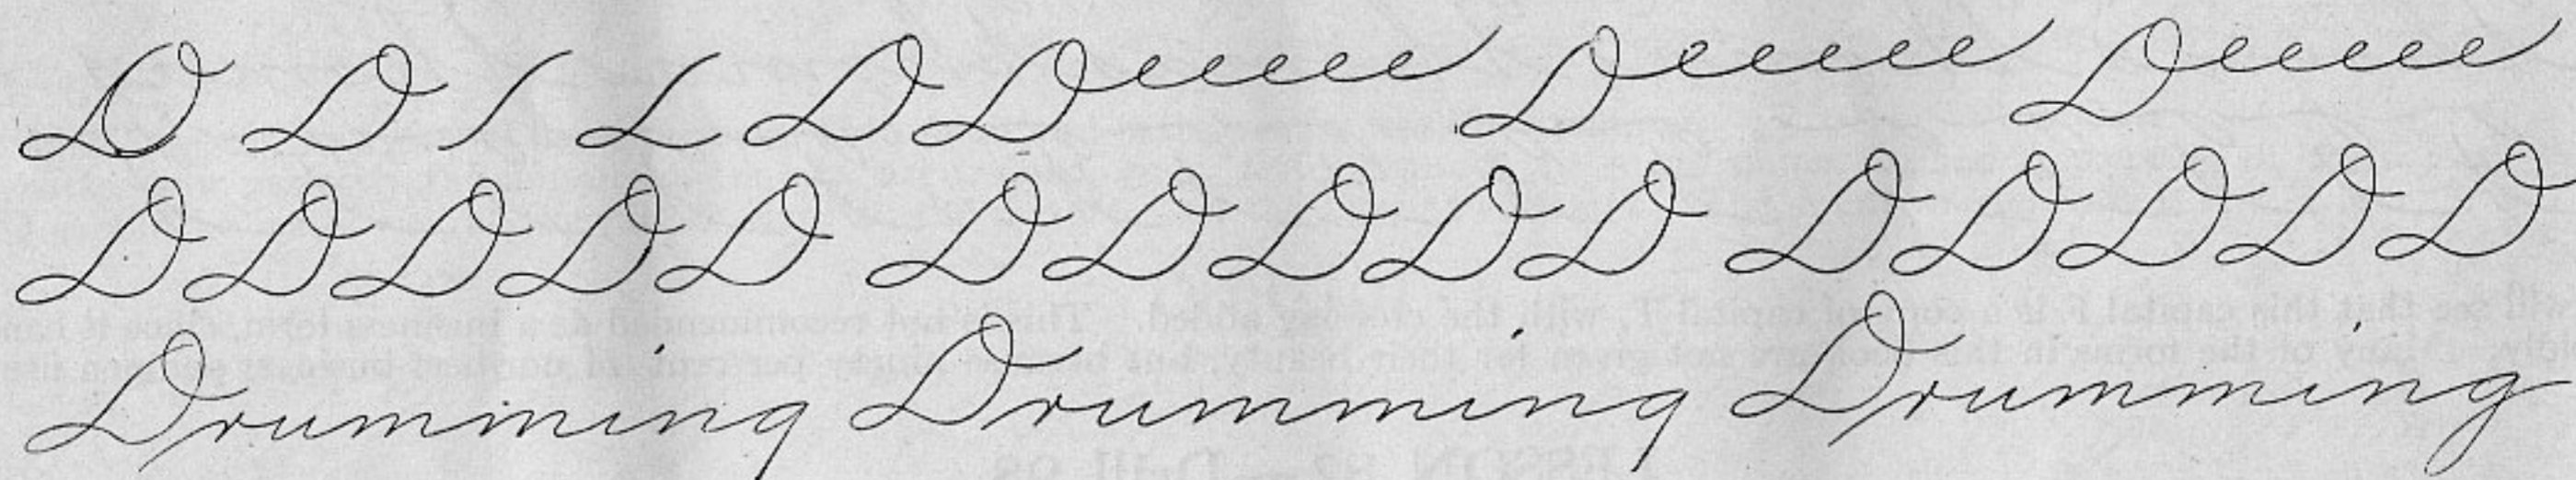 D D D D Deeeee Deeeee Deeeee
D D D D D D D D D D D D D D D
Drumming Drumming Drumming